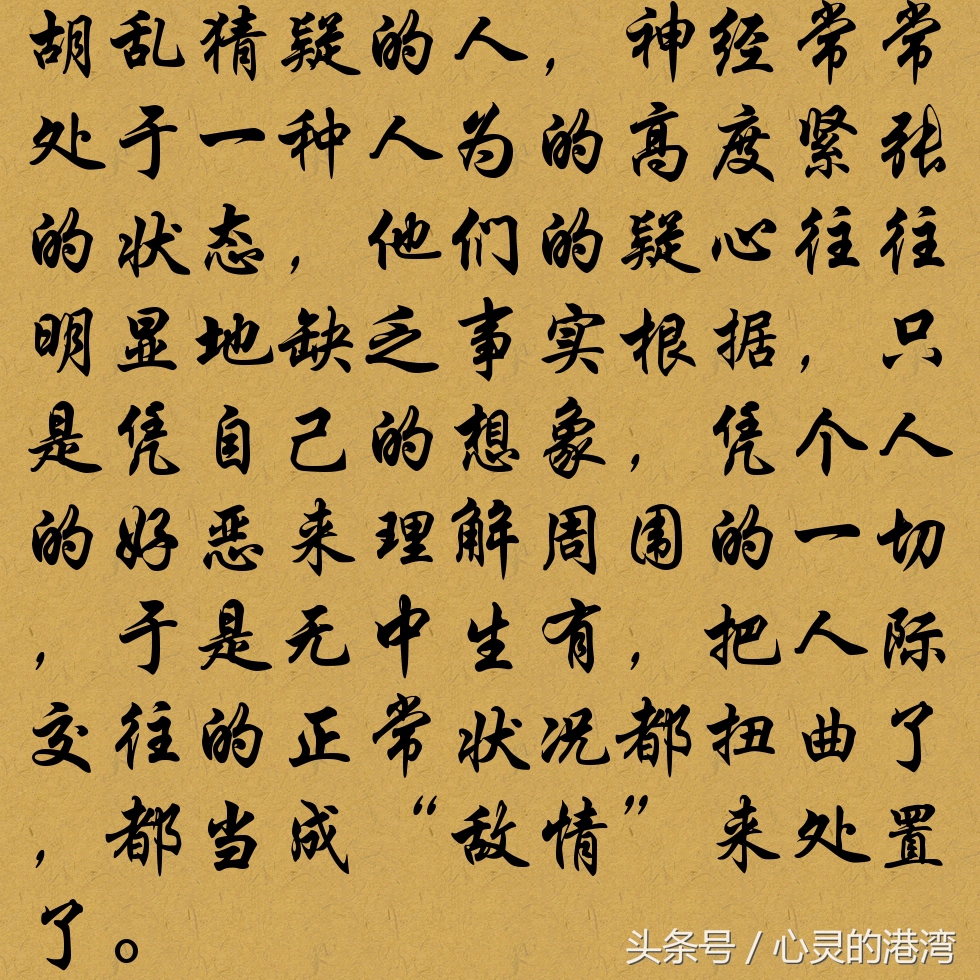 胡乱猜疑的人，神经常常
处于一种人为的高度紧张
的状态，他们的疑心往往
明显地缺乏事实根据，只
是凭自己的想象，凭个人
的好恶来理解周围的一切
，于是无中生有，把人际
交往的正常状况都扭曲了
，都当成“敌情”来处置
了。
头条号 / 心灵的港湾